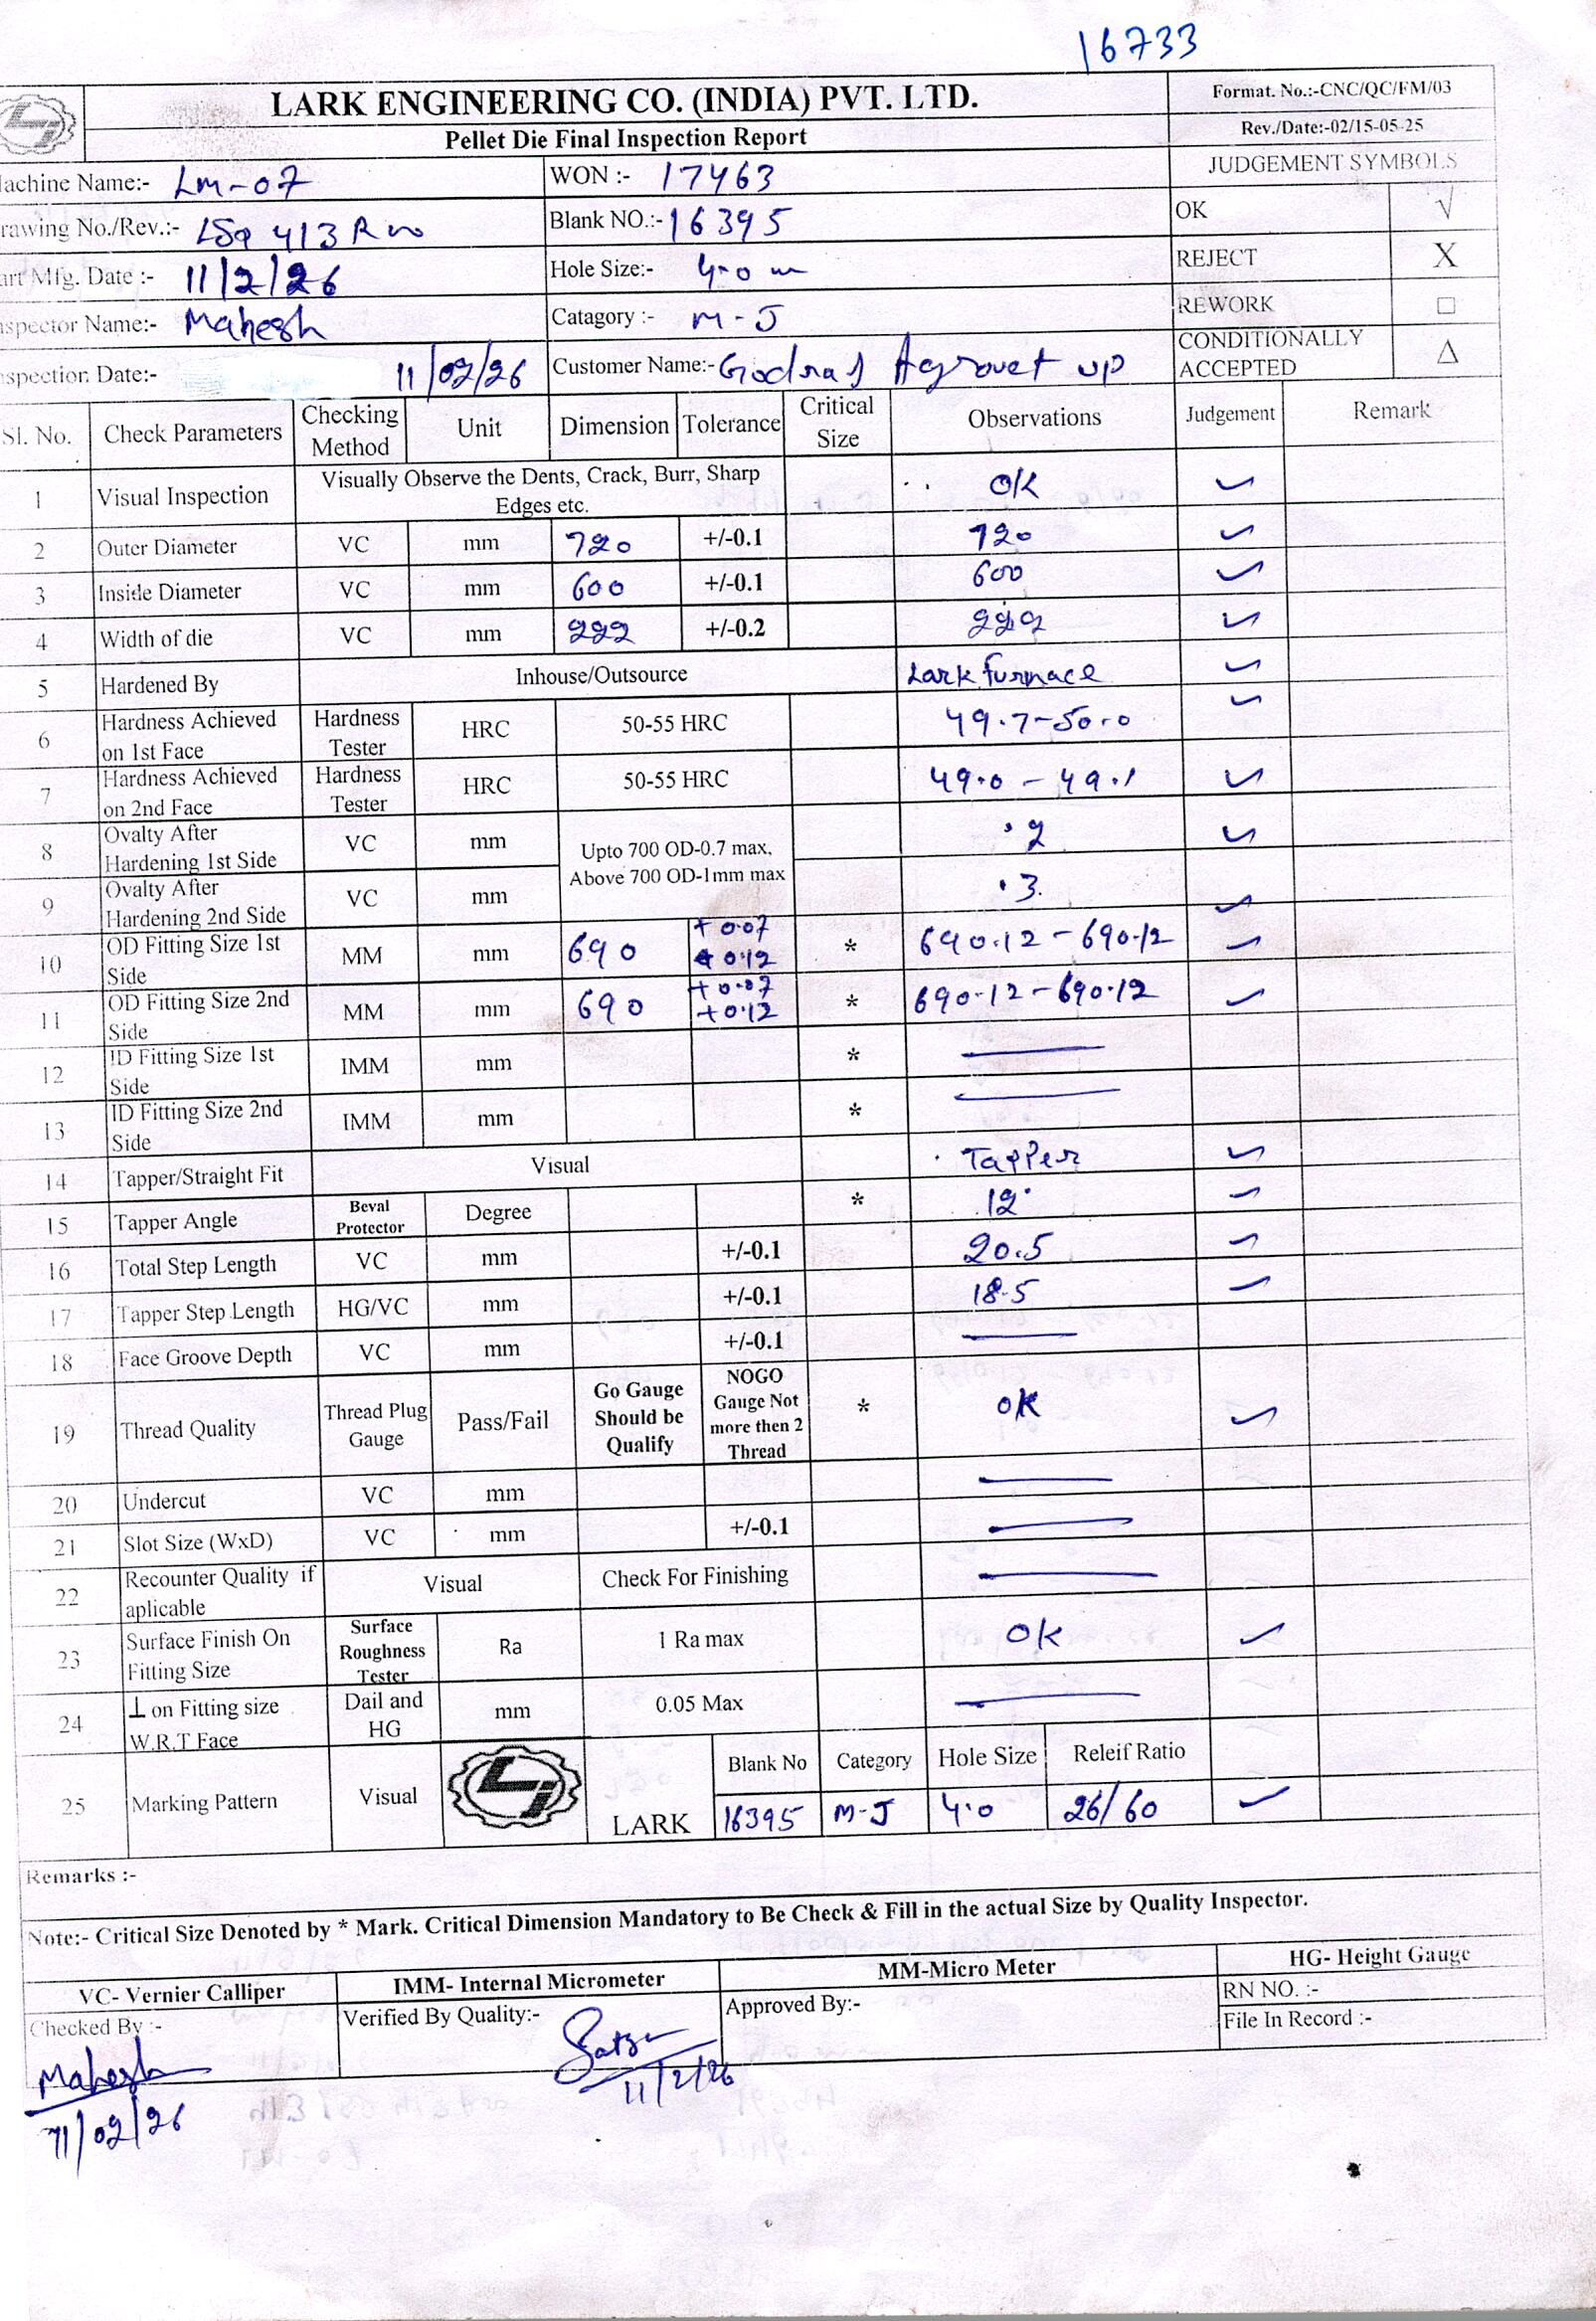 16733
LARK ENGINEERING CO. (INDIA) PVT. LTD.
Format. No.:-CNC/QC/FM/03
Pellet Die Final Inspection Report
Rev./Date:-02/15-05-25
achine Name:- LM-07 WON :- 17463 JUDGEMENT SYMBOLS
rawing No./Rev.:- 413 Blank NO.:- 16395 OK √
art Mfg. Date :- 11/2/26 Hole Size:- 4.0 m REJECT X
spector Name:- Mahesh Catagory :- M-J REWORK □
spection Date:- 11/02/26 Customer Name:- Godraj Agrovet UP CONDITIONALLY ACCEPTED Δ
Sl. No. Check Parameters Checking Method Unit Dimension Tolerance Critical Size Observations Judgement Remark
1 Visual Inspection Visually Observe the Dents, Crack, Burr, Sharp Edges etc. OK ✓
2 Outer Diameter VC mm 720 +/-0.1 720 ✓
3 Inside Diameter VC mm 600 +/-0.1 600 ✓
4 Width of die VC mm 222 +/-0.2 222 ✓
5 Hardened By Inhouse/Outsource Lark furnace ✓
6 Hardness Achieved on 1st Face Hardness Tester HRC 50-55 HRC 49.7-50.0 ✓
7 Hardness Achieved on 2nd Face Hardness Tester HRC 50-55 HRC 49.0 - 49.1 ✓
8 Ovalty After Hardening 1st Side VC mm Upto 700 OD-0.7 max, Above 700 OD-1mm max .2 ✓
9 Ovalty After Hardening 2nd Side VC mm .3 ✓
10 OD Fitting Size 1st Side MM mm 690 +0.07 +0.12 * 690.12 - 690.12 ✓
11 OD Fitting Size 2nd Side MM mm 690 +0.07 +0.12 * 690.12 - 690.12 ✓
12 ID Fitting Size 1st Side IMM mm * —
13 ID Fitting Size 2nd Side IMM mm * —
14 Tapper/Straight Fit Visual Tapper ✓
15 Tapper Angle Beval Protector Degree * 12° ✓
16 Total Step Length VC mm +/-0.1 20.5 ✓
17 Tapper Step Length HG/VC mm +/-0.1 18.5 ✓
18 Face Groove Depth VC mm +/-0.1 —
19 Thread Quality Thread Plug Gauge Pass/Fail Go Gauge Should be Qualify NOGO Gauge Not more then 2 Thread * OK ✓
20 Undercut VC mm —
21 Slot Size (WxD) VC mm +/-0.1 —
22 Recounter Quality if aplicable Visual Check For Finishing —
23 Surface Finish On Fitting Size Surface Roughness Tester Ra 1 Ra max OK ✓
24 ⊥ on Fitting size W.R.T Face Dail and HG mm 0.05 Max —
25 Marking Pattern Visual LARK Blank No Category Hole Size Releif Ratio
16395 M-J 4.0 26/60 ✓
Remarks :-
Note:- Critical Size Denoted by * Mark. Critical Dimension Mandatory to Be Check & Fill in the actual Size by Quality Inspector.
VC- Vernier Calliper IMM- Internal Micrometer MM-Micro Meter HG- Height Gauge
Checked By :- Verified By Quality:- Approved By:- RN NO. :-
File In Record :-
Mahesh
11/02/26
11/2/26